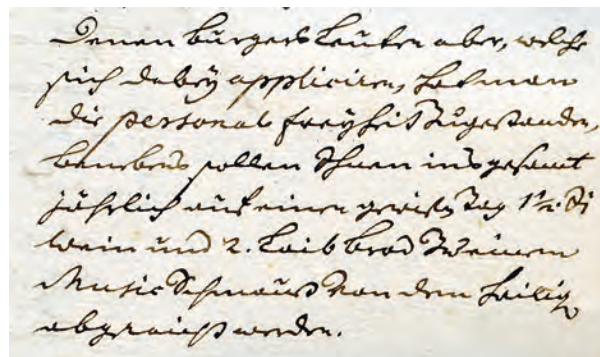 Denen burgers Leuten aber, welche
sich dabeÿ appliciren, hat man
die personal freÿheit zugestanden,
benebens sollen Ihnen insgesamt
jährlich auf einen gewißen Tag 1½.
wein und 2. Laib brod zu einem
Music Schmauß von dem heilig
abgereicht werden.